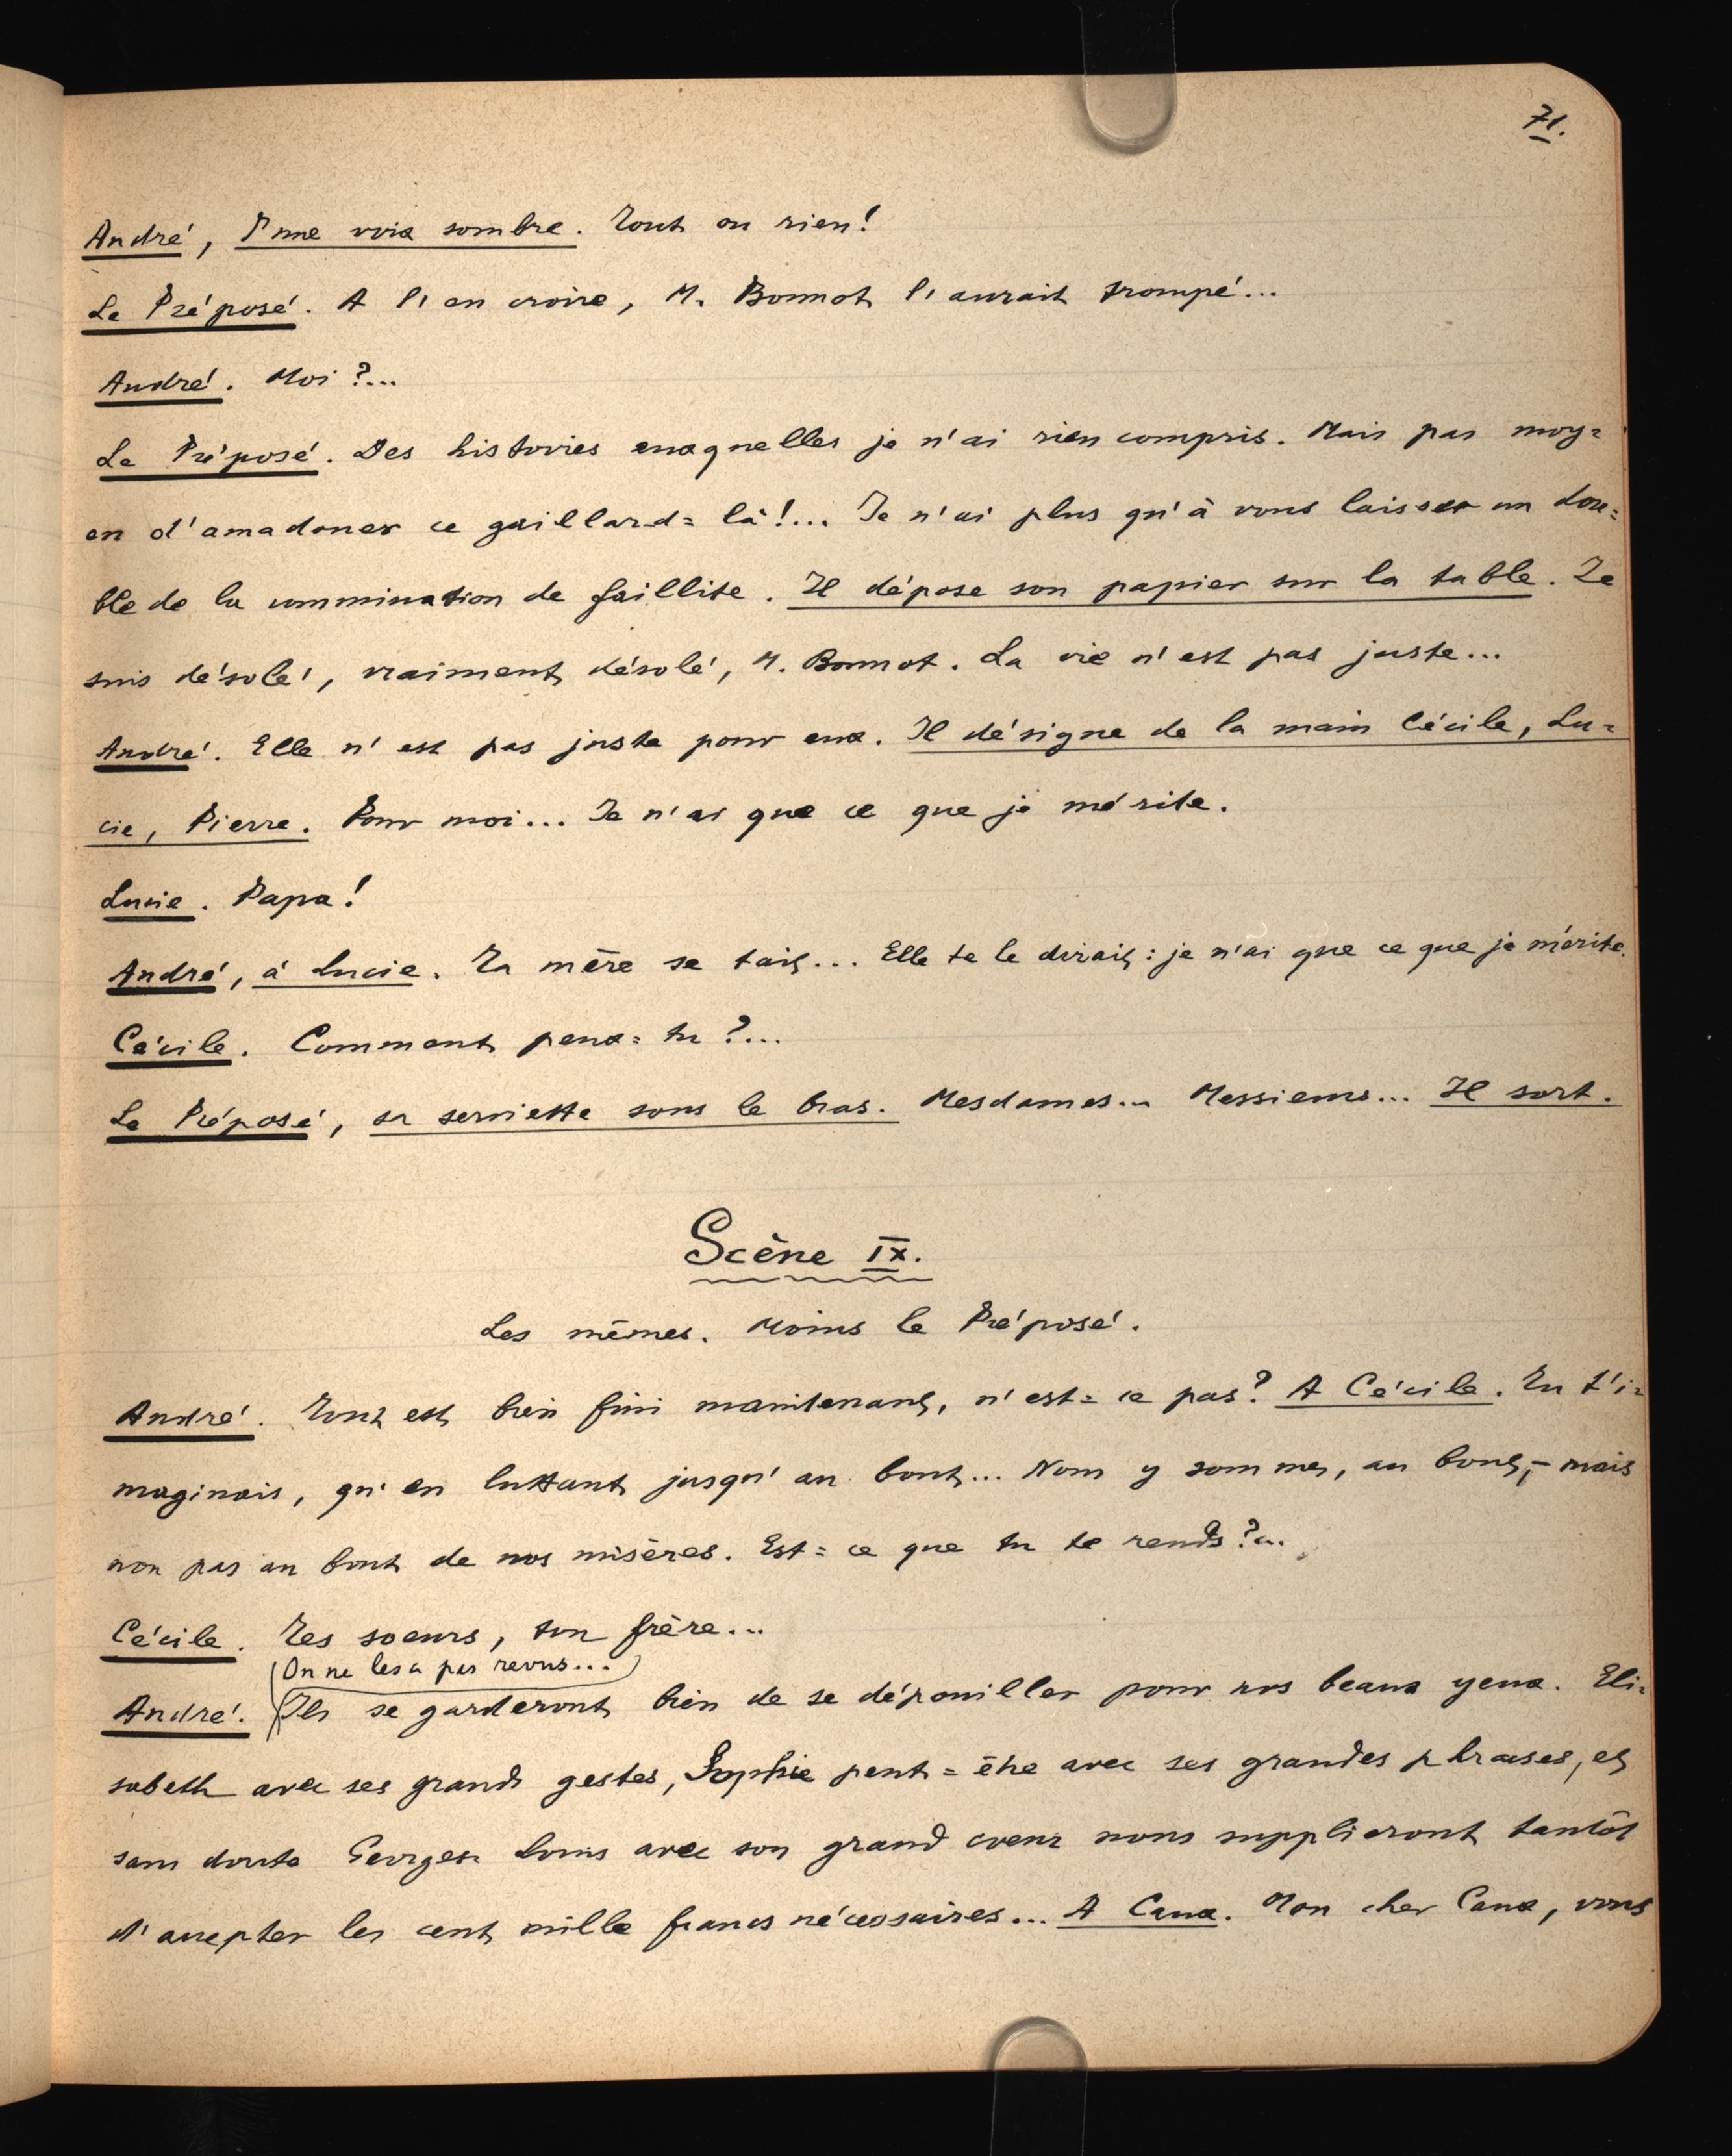 71.
André, d'une voix sombre. Tout ou rien!
Le Préposé. A l'en croire, M. Bonnot l'aurait trompé...
André. Moi?...
Le Préposé. Des histoires auxquelles je n'ai rien compris. Mais pas moy=
en d'amadouer ce gaillard=là!... Je n'ai plus qu'à vous laisser un dou=
ble de la commination de faillite. Il dépose son papier sur la table. Je
suis désolé, vraiment désolé, M. Bonnot. La vie n'est pas juste...
André. Elle n'est pas juste pour eux. Il désigne de la main Cécile, Lu=
cie, Pierre. Pour moi... Je n'ai que ce que je mérite.
Lucie. Papa!
André, à Lucie. Ta mère se tait... Elle te le dirait: je n'ai que ce que je mérite.
Cécile. Comment peux=tu?...
Le Préposé, sa serviette sous le bras. Mesdames... Messieurs... Il sort.
Scène IX.
Les mêmes. Moins le Préposé.
André. Tout est bien fini maintenant, n'est=ce pas? A Cécile. Tu t'i=
maginais, qu'en luttant jusqu'au bout... Nous y sommes, au bout, – mais
non pas au bout de nos misères. Est=ce que tu te rends?...
Cécile. Tes soeurs, ton frère...
(On ne les a pas revus...)
André. Ils se garderont bien de se dépouiller pour nos beaux yeux. Eli=
sabeth avec ses grands gestes, Sophie peut=être avec ses grandes phrases, et
sans doute Georges Louis avec son grand coeur nous supplieront tantôt
d'accepter les cent mille francs nécessaires... A Caux. Mon cher Caux, vous